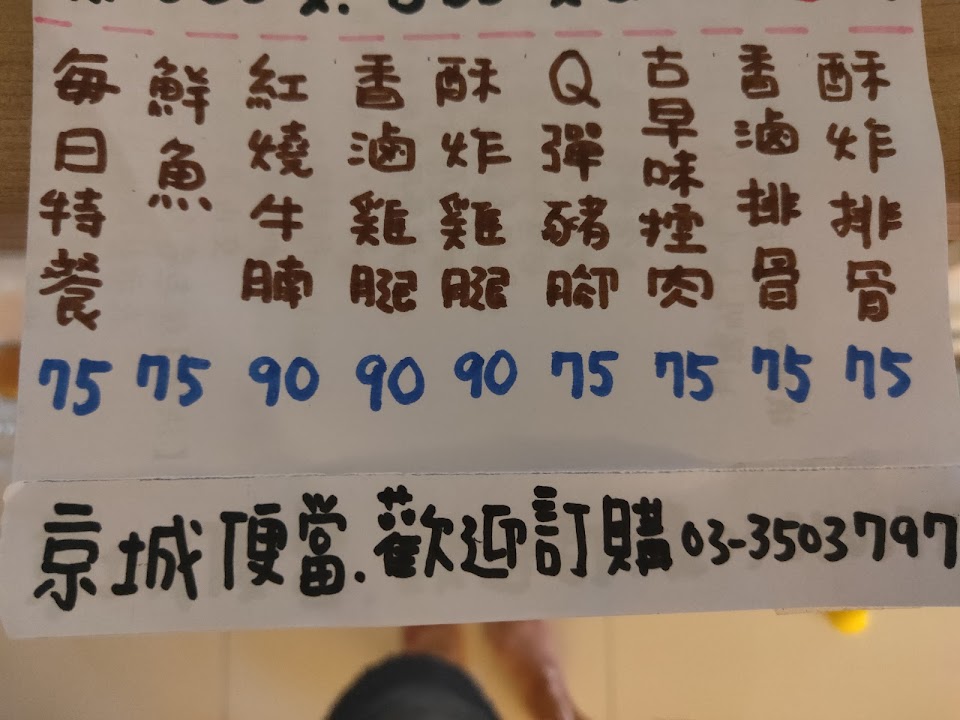 酥炸排骨 75
香滷排骨 75
古早味爌肉 75
Q彈豬腳 75
酥炸雞腿 90
香滷雞腿 90
紅燒牛腩 90
鮮魚 75
每日特餐 75
京城便當.歡迎訂購03-3503797